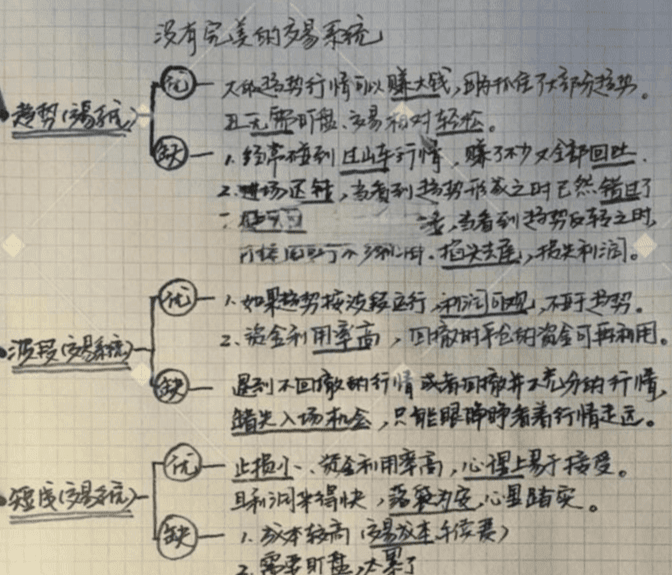 没有完美的交易系统
趋势(交易系统)
优 — 大的趋势行情可以赚大钱,因为抓住了大部分趋势。
且无需盯盘、交易相对轻松。
缺 — 1. 经常碰到过山车行情,赚了不少又全部回吐.
2. 进场迟钝,当看到趋势形成之时已然错过了
一 当看到趋势反转之时,
掐头去尾,损失利润。
波段(交易系统)
优 — 1. 如果趋势按波段运行,利润可观,不亚于趋势。
2. 资金利用率高,回撤时平仓的资金可再利用。
缺 — 遇到不回撤的行情或者回撤并不充分的行情,
错失入场机会,只能眼睁睁看着行情走远。
短线(交易系统)
优 — 止损小、资金利用率高,心理上易于接受。
且利润来得快,落袋为安,心里踏实。
缺 — 1. 成本较高(交易成本手续费)
2. 需要盯盘,太累了